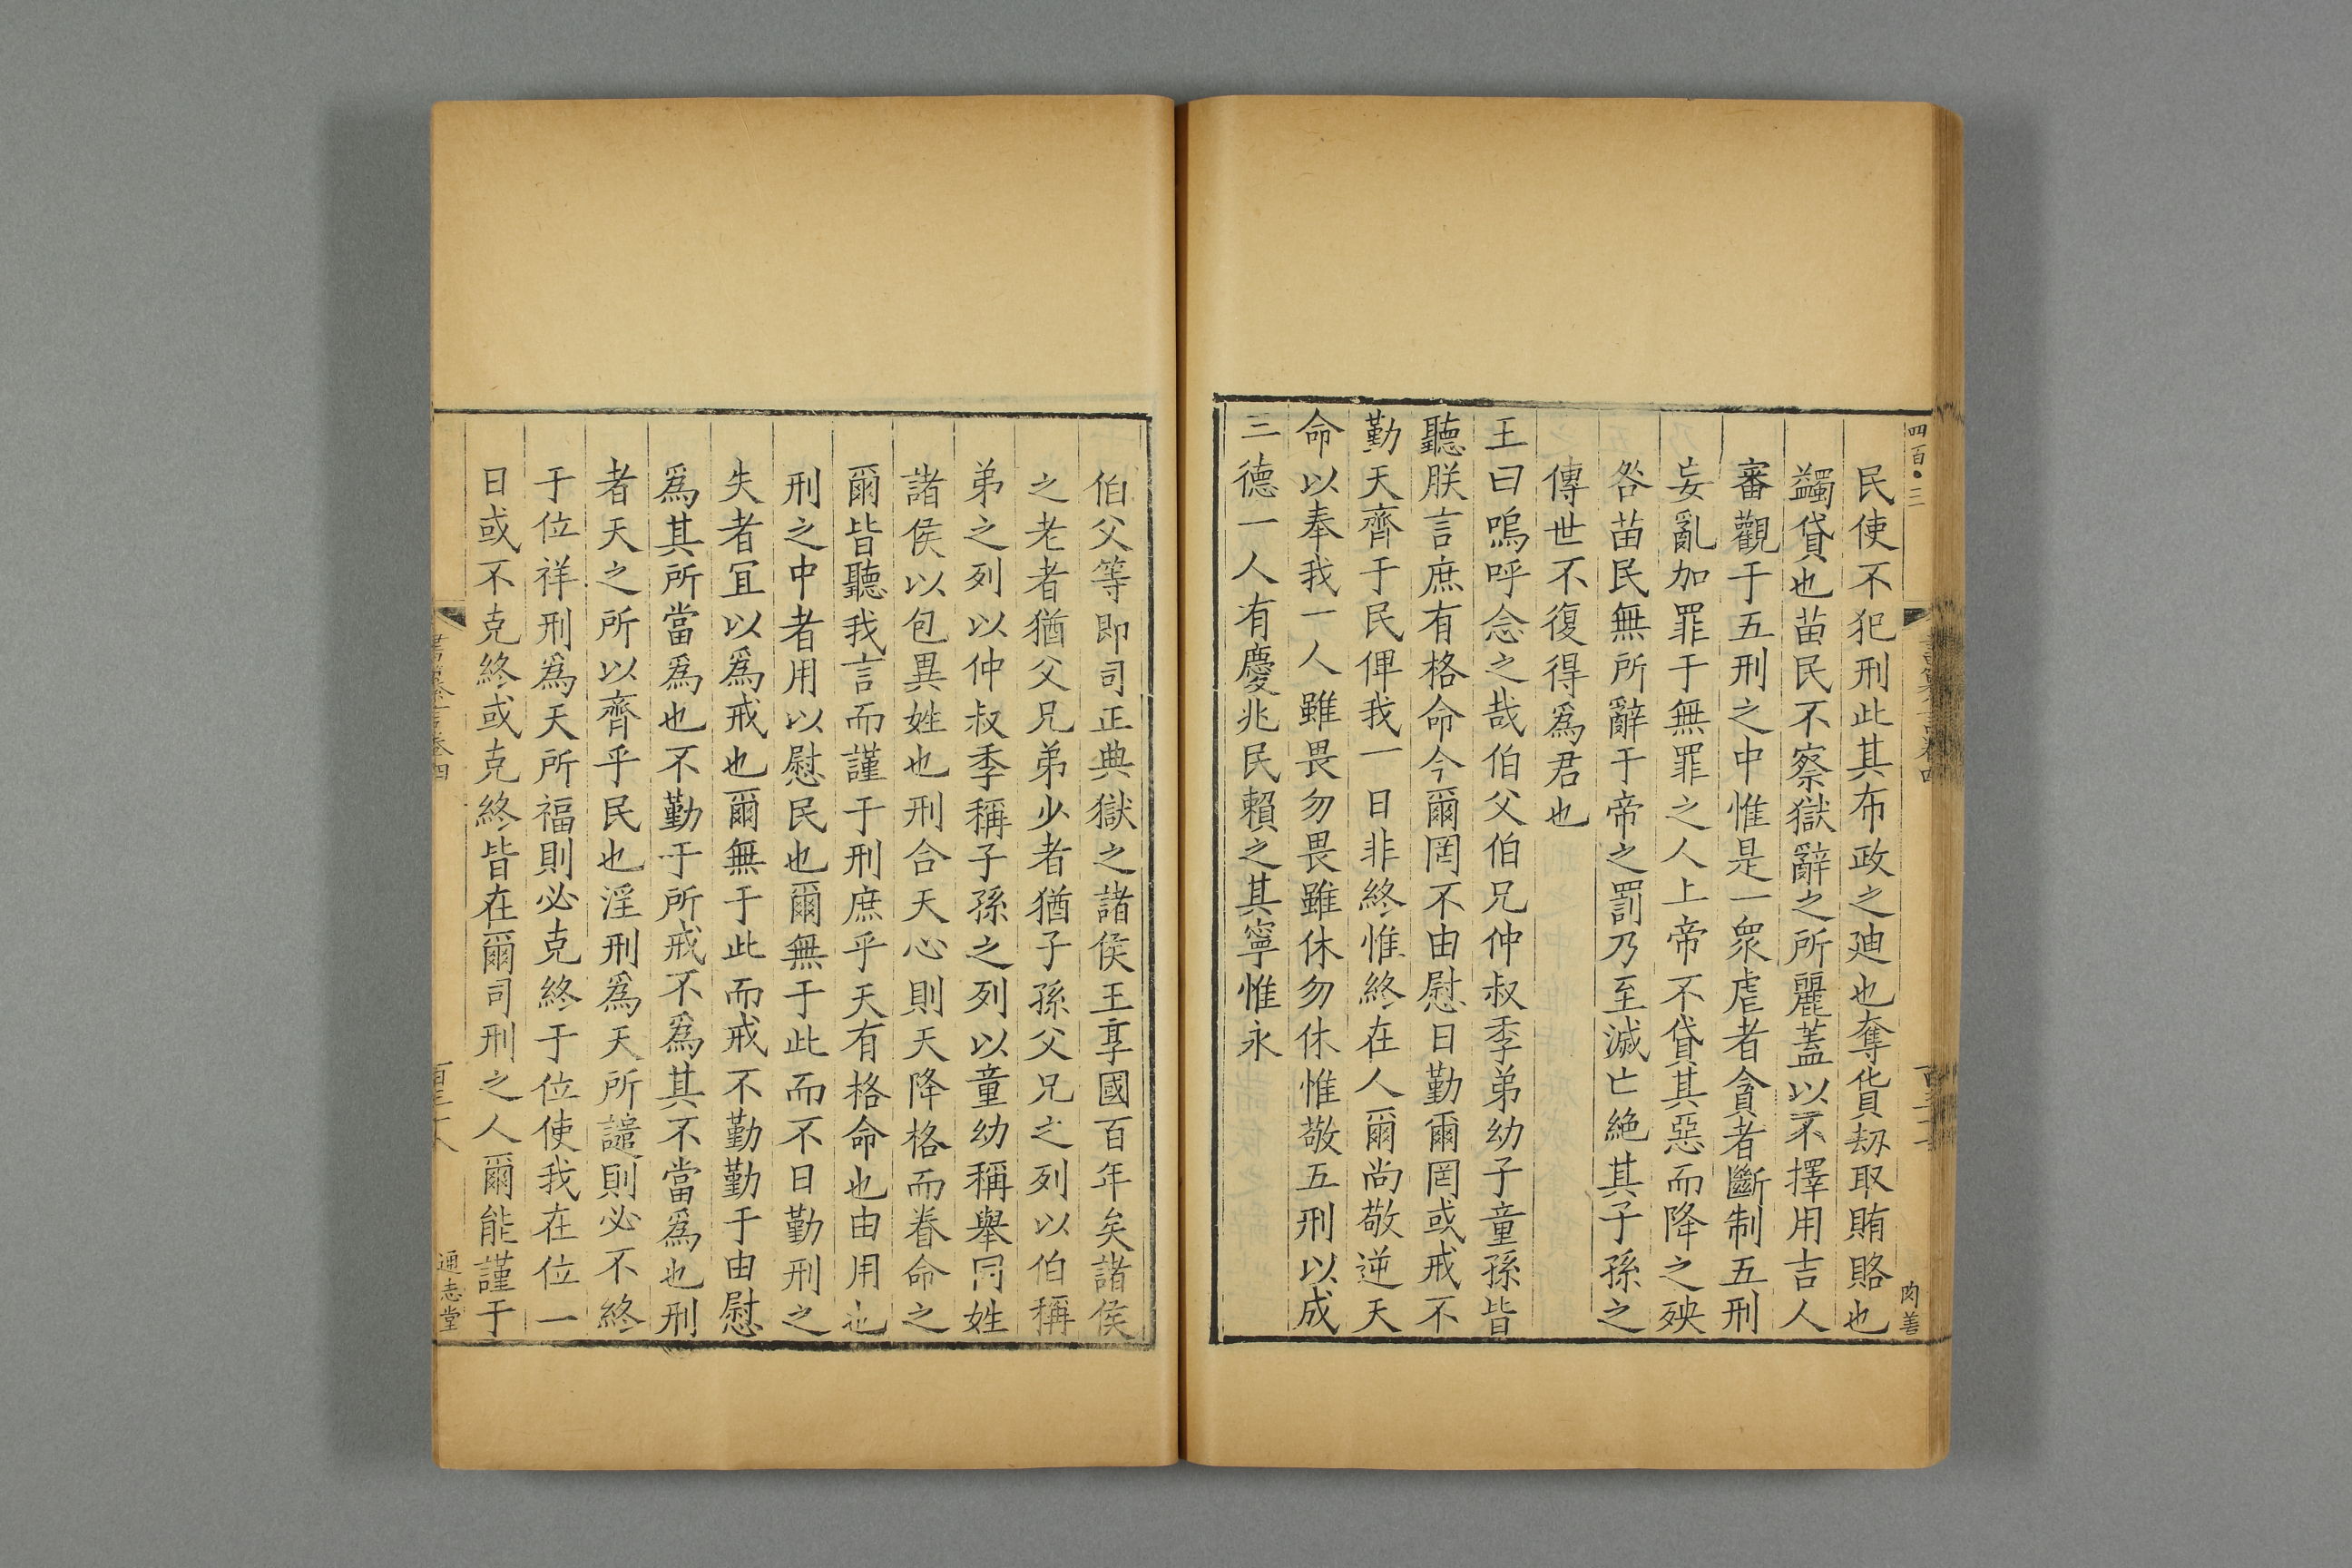 四百·三
民使不犯刑此其布政之廸也奪貨刼取賄賂也
蠲貸也苗民不察獄辭之所麗蓋以不擇用吉人
審觀于五刑之中惟是一衆虐者貪者斷制五刑
妄亂加罪于無罪之人上帝不貸其惡而降之殃
咎苗民無所辭于帝之罰乃至滅亡絶其子孫之
傳世不復得爲君也
王曰嗚呼念之哉伯父伯兄仲叔季弟幼子童孫皆
聽朕言庶有格命今爾罔不由慰日勤爾罔或戒不
勤天齊于民俾我一日非終惟終在人爾尚敬逆天
命以奉我一人雖畏勿畏雖休勿休惟敬五刑以成
三德一人有慶兆民賴之其寧惟永
肉善
伯父等即司正典獄之諸侯王享國百年矣諸侯
之老者猶父兄弟少者猶子孫父兄之列以伯稱
弟之列以仲叔季稱子孫之列以童幼稱舉同姓
諸侯以包異姓也刑合天心則天降格而眷命之
爾皆聽我言而謹于刑庶乎天有格命也由用也
刑之中者用以慰民也爾無于此而不日勤刑之
失者宜以爲戒也爾無于此而戒不勤勤于由慰
爲其所當爲也不勤于所戒不爲其不當爲也刑
者天之所以齊乎民也淫刑爲天所譴則必不終
于位祥刑爲天所福則必克終于位使我在位一
日或不克終或克終皆在爾司刑之人爾能謹于
通志堂